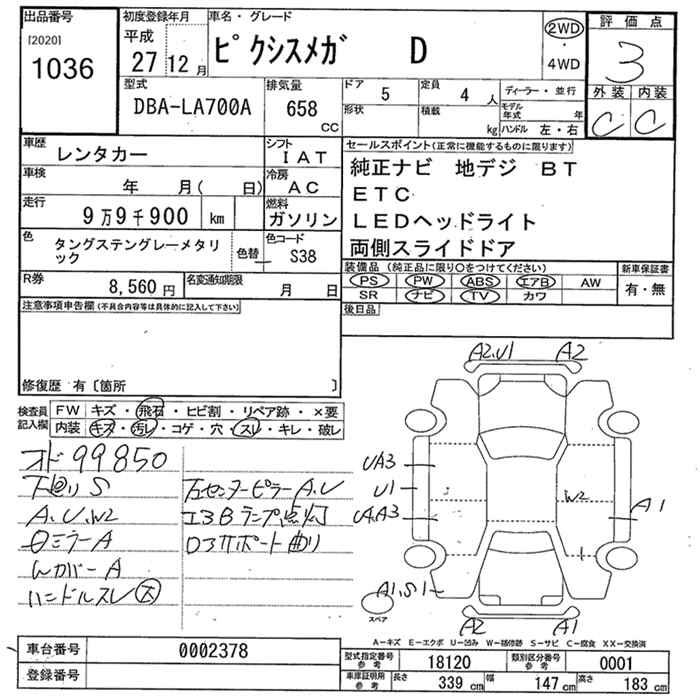 出品番号
[2020]
1036
初度登録年月
平成
27 12 月
車名・グレード
ピクシスメガ D
2WD
・
4WD
評価点
3
外装 内装
C C
型式
DBA-LA700A
排気量
658 CC
ドア 5
定員 4 人
形状
積載 kg
ディーラー・並行
モデル年式 年
ハンドル 左・右
車歴
レンタカー
シフト
IAT
車検
年 月( 日)
冷房
AC
走行
9万9千900 km
燃料
ガソリン
色
タングステングレーメタリック
色替
色コード
S38
R券
8,560 円
名変通知期限
月 日
セールスポイント(正常に機能するものに限ります)
純正ナビ 地デジ BT
ETC
LEDヘッドライト
両側スライドドア
装備品(純正品に限り○をつけてください)
PS PW ABS エアB AW
SR ナビ TV カワ
新車保証書
有・無
後日品
注意事項申告欄(不具合内容等は具体的に記入して下さい)
修復歴 有〔箇所 〕
検査員記入欄
FW キズ・飛石・ヒビ割・リペア跡・×要
内装 キズ・汚レ・コゲ・穴・スレ・キレ・破レ
オド 99850
下廻りS
A、U、W2
ミラーA
カバーA
ハンドルスレ大
センターピラーA、U
エアBランプ点灯
サポート曲り
A2,U1 A2
UA3
U1
UA,A3
W2
A1
A1,S1
スペア
A2 A1
A-キズ E-エクボ U-凹み W-補修跡 S-サビ C-腐食 XX-交換済
車台番号 0002378
登録番号
型式指定番号参考 18120
類別区分番号参考 0001
車庫証明用参考 長さ 339 cm 幅 147 cm 高さ 183 cm